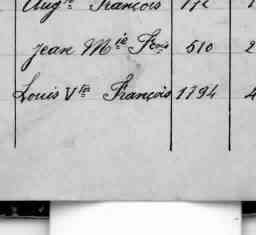 Augte François 172 1
Jean Mie Fois 510 2
Louis Vte François 1794 4